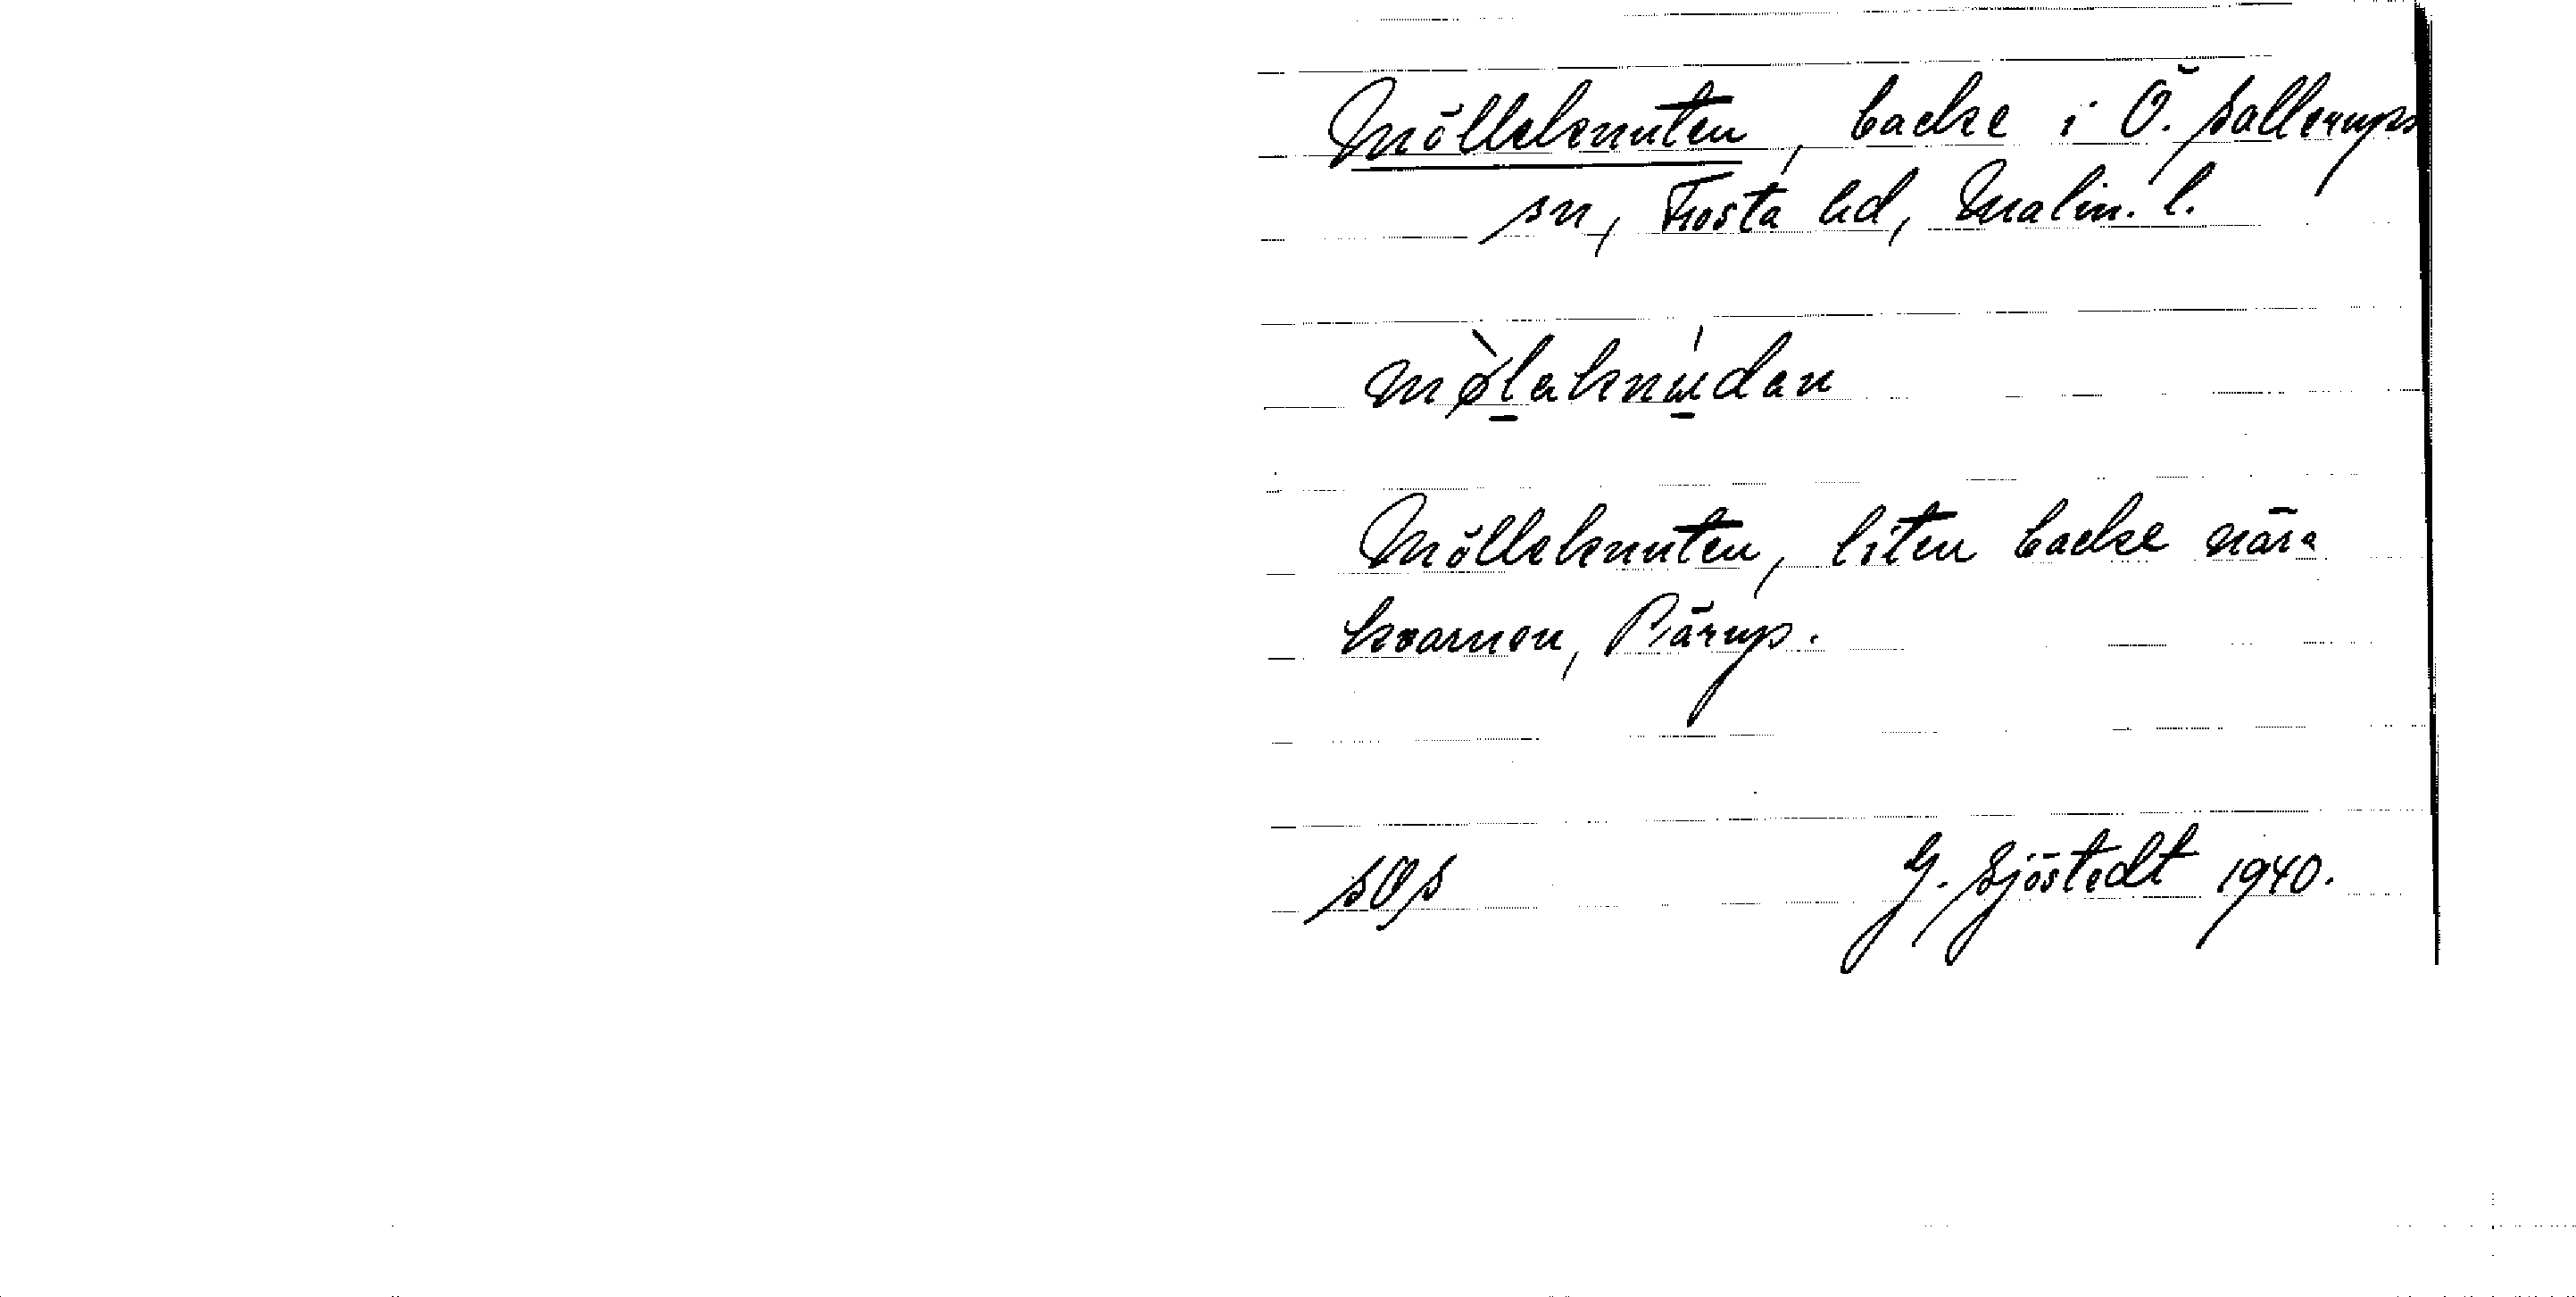 Mölleknuten, backe i Ö. Sallerups
sn, Frosta hd, Malm. l.
mø̀laknúdan
Mölleknuten, liten backe nära
kvarnen, Pärup.
SOS G. Sjöstedt 1940.